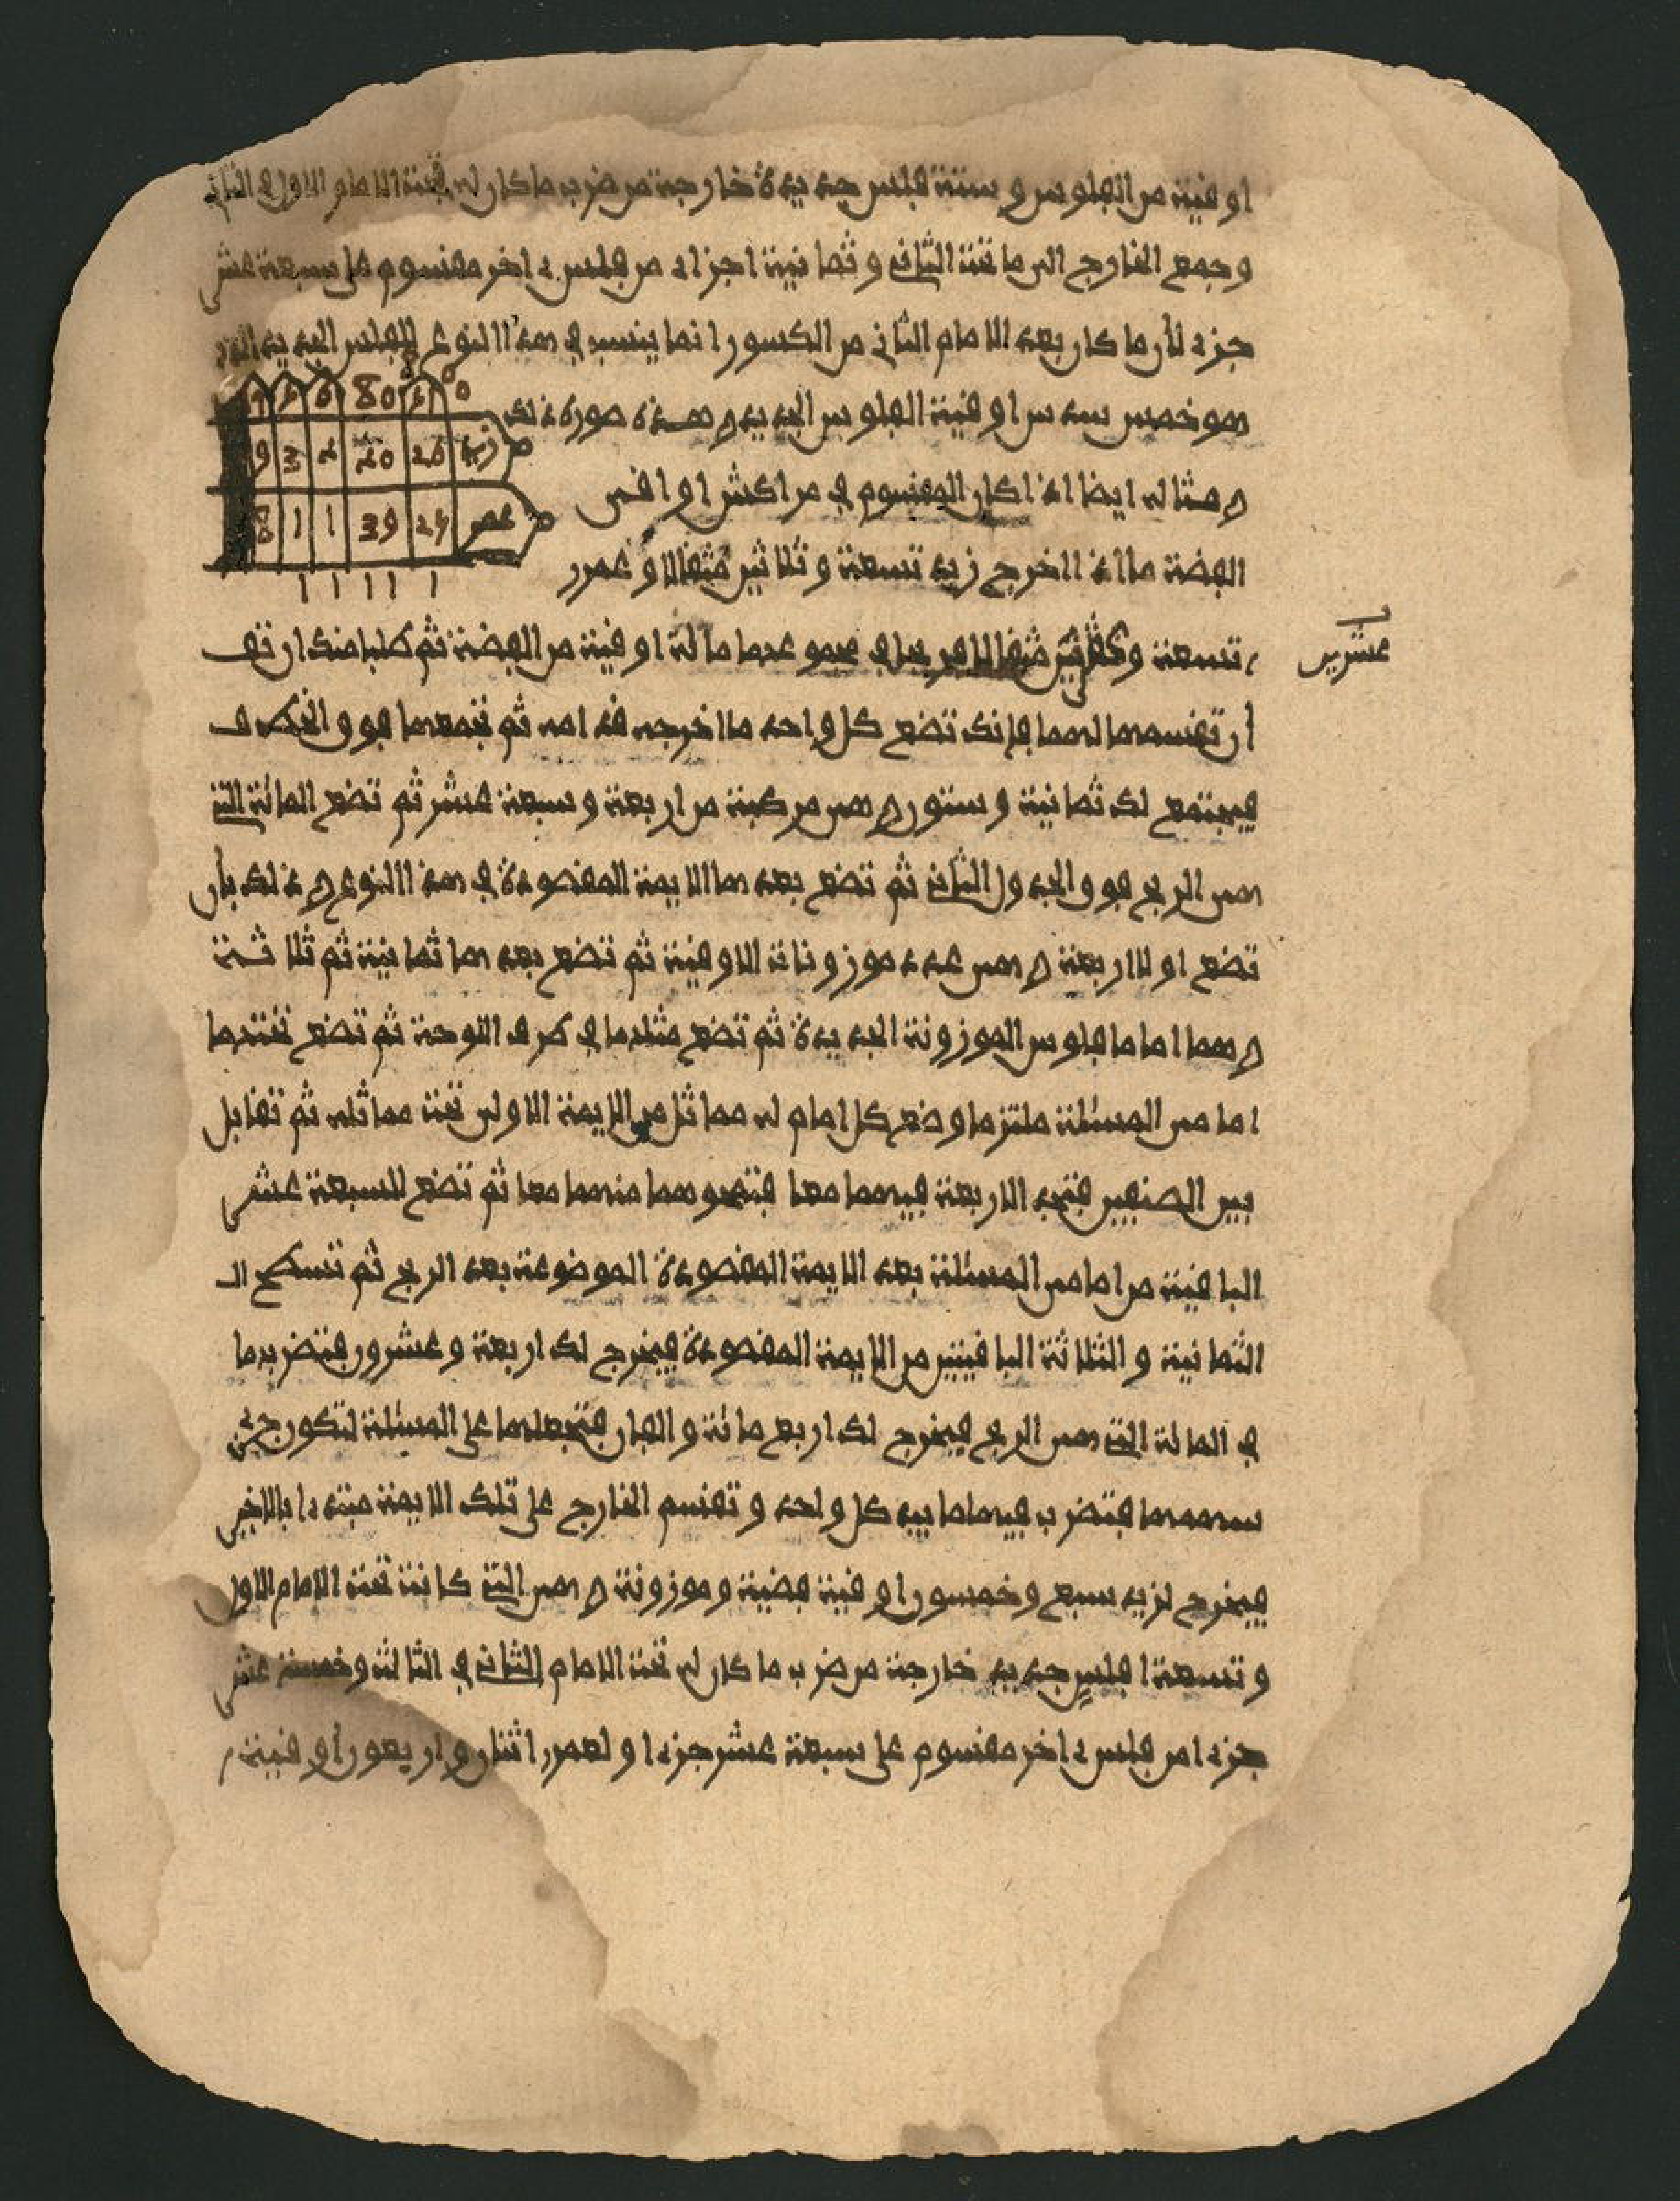 اوقية من الفلوس وستة فلس جديدة خارجة من ضرب ما كان له تحت الامام الاول في الثاني
وجمع الخارج الى ما تحت الثاني وثمانية اجزاء من فلس ءاخر مقسوم على سبعة عشر
جزء لأن ما كان بعد الامام الثاني من الكسور انما ينسب في هذا النوع للفلس الجديد الذي
هو خمس سدس اوقية الفلوس الجديد وهذه صورة ذلك
ومثاله ايضا اذا كان المقسوم في مراكش او اقى
الفضة ما اذا اخرج زيد تسعة وثلاثين مثقالا وعمرر
تسعة وعشرين مثقالا مائة اوقية من الفضة ثم طلبا منك ان تقـ
أن تقسمها لهما فإنك تضع كل واحد ما اخرجه قدامه ثم تجمعهما فوق الخط فـ
فيجتمع لك ثمانية وستون وهي مركبة من اربعة وسبعة عشر ثم تضع المائة التي
هي الربح فوق الجدول الثاني ثم تضع بعدها الايمة المقصودة في هذا النوع وذلك بأن
تضع اولا اربعة وهي عدد موزونات الاوقية ثم تضع بعدها ثمانية ثم ثلاثـة
وهما اماما فلوس الموزونة الجديدة ثم تضع مثلها في طرف اللوحة ثم تضع تحتها
امامي المسئلة ملتزما وضع كل امام له مماثل من الايمة الاولى تحت مماثله ثم تقابل
بين الصفين فتجد الاربعة فيهما معا فتمحوهما منهما معا ثم تضع السبعة عشر
الباقية من امامي المسئلة بعد الايمة المقصودة الموضوعة بعد الربح ثم تسطح الـ
الثمانية والثلاثة الباقيتين من الايمة المقصودة فيخرج لك اربعة وعشرون فتضربها
في المائة التي هي الربح فيخرج لك اربع مائة والفان فتجعلها على المسئلة لتكون جزء
سهمها فتضرب فيه ما بيد كل واحد وتقسم الخارج على تلك الايمة مبتدءا بالاخير
فيخرج لزيد سبع وخمسون اوقية فضية وموزونة وهي التي كانت تحت الامام الاول
وتسعة افلس جديد خارجة من ضرب ما كان له تحت الامام الثاني في الثالث وخمسة عشر
جزءا من فلس ءاخر مقسوم على سبعة عشر جزءا ولعمرر اثنان واربعون أوقية
عشرين
80
9 3 4 40 26 زيد
8 1 1 39 29 عمر
1 1 1 1 1